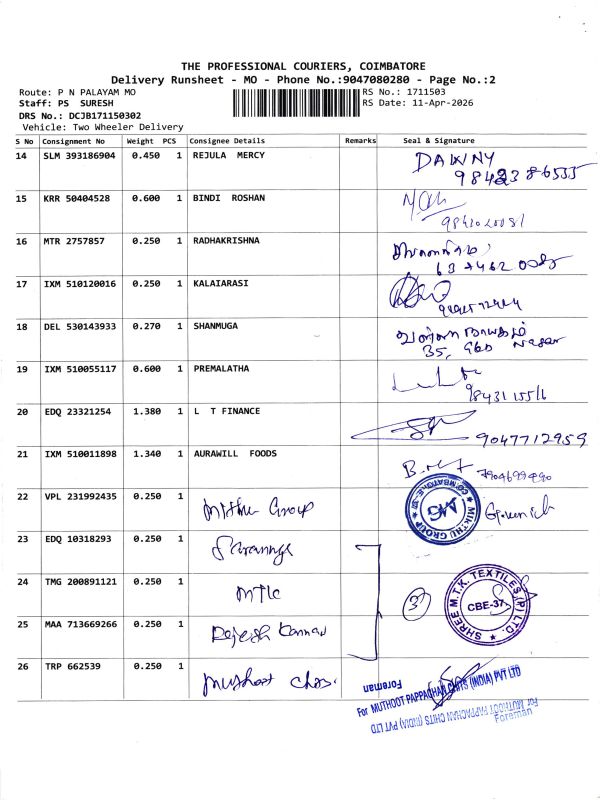 THE PROFESSIONAL COURIERS, COIMBATORE
Delivery Runsheet - MO - Phone No.:9047080280 - Page No.:2
Route: P N PALAYAM MO
RS No.: 1711503
Staff: PS SURESH
RS Date: 11-Apr-2026
DRS No.: DCJB171150302
Vehicle: Two Wheeler Delivery
S No Consignment No Weight PCS Consignee Details Remarks Seal & Signature
14 SLM 393186904 0.450 1 REJULA MERCY DAWNY
15 KRR 50404528 0.600 1 BINDI ROSHAN
16 MTR 2757857 0.250 1 RADHAKRISHNA
17 IXM 510120016 0.250 1 KALAIARASI
18 DEL 530143933 0.270 1 SHANMUGA
35, Nagar
19 IXM 510055117 0.600 1 PREMALATHA
20 EDQ 23321254 1.380 1 L T FINANCE
9047712959
21 IXM 510011898 1.340 1 AURAWILL FOODS
22 VPL 231992435 0.250 1 Mithu Group
MIKTHU GROUP COIMBATORE-37
23 EDQ 10318293 0.250 1 Saranya
24 TMG 200891121 0.250 1 MTK 3
SHREE M.T.K. TEXTILES (P) LTD.
CBE-37
25 MAA 713669266 0.250 1 Rajesh Kannan
26 TRP 662539 0.250 1 Muthoot Chits
For MUTHOOT PAPPACHAN CHITS (INDIA) PVT LTD
Foreman
For MUTHOOT PAPPACHAN CHITS (INDIA) PVT LTD
Foreman